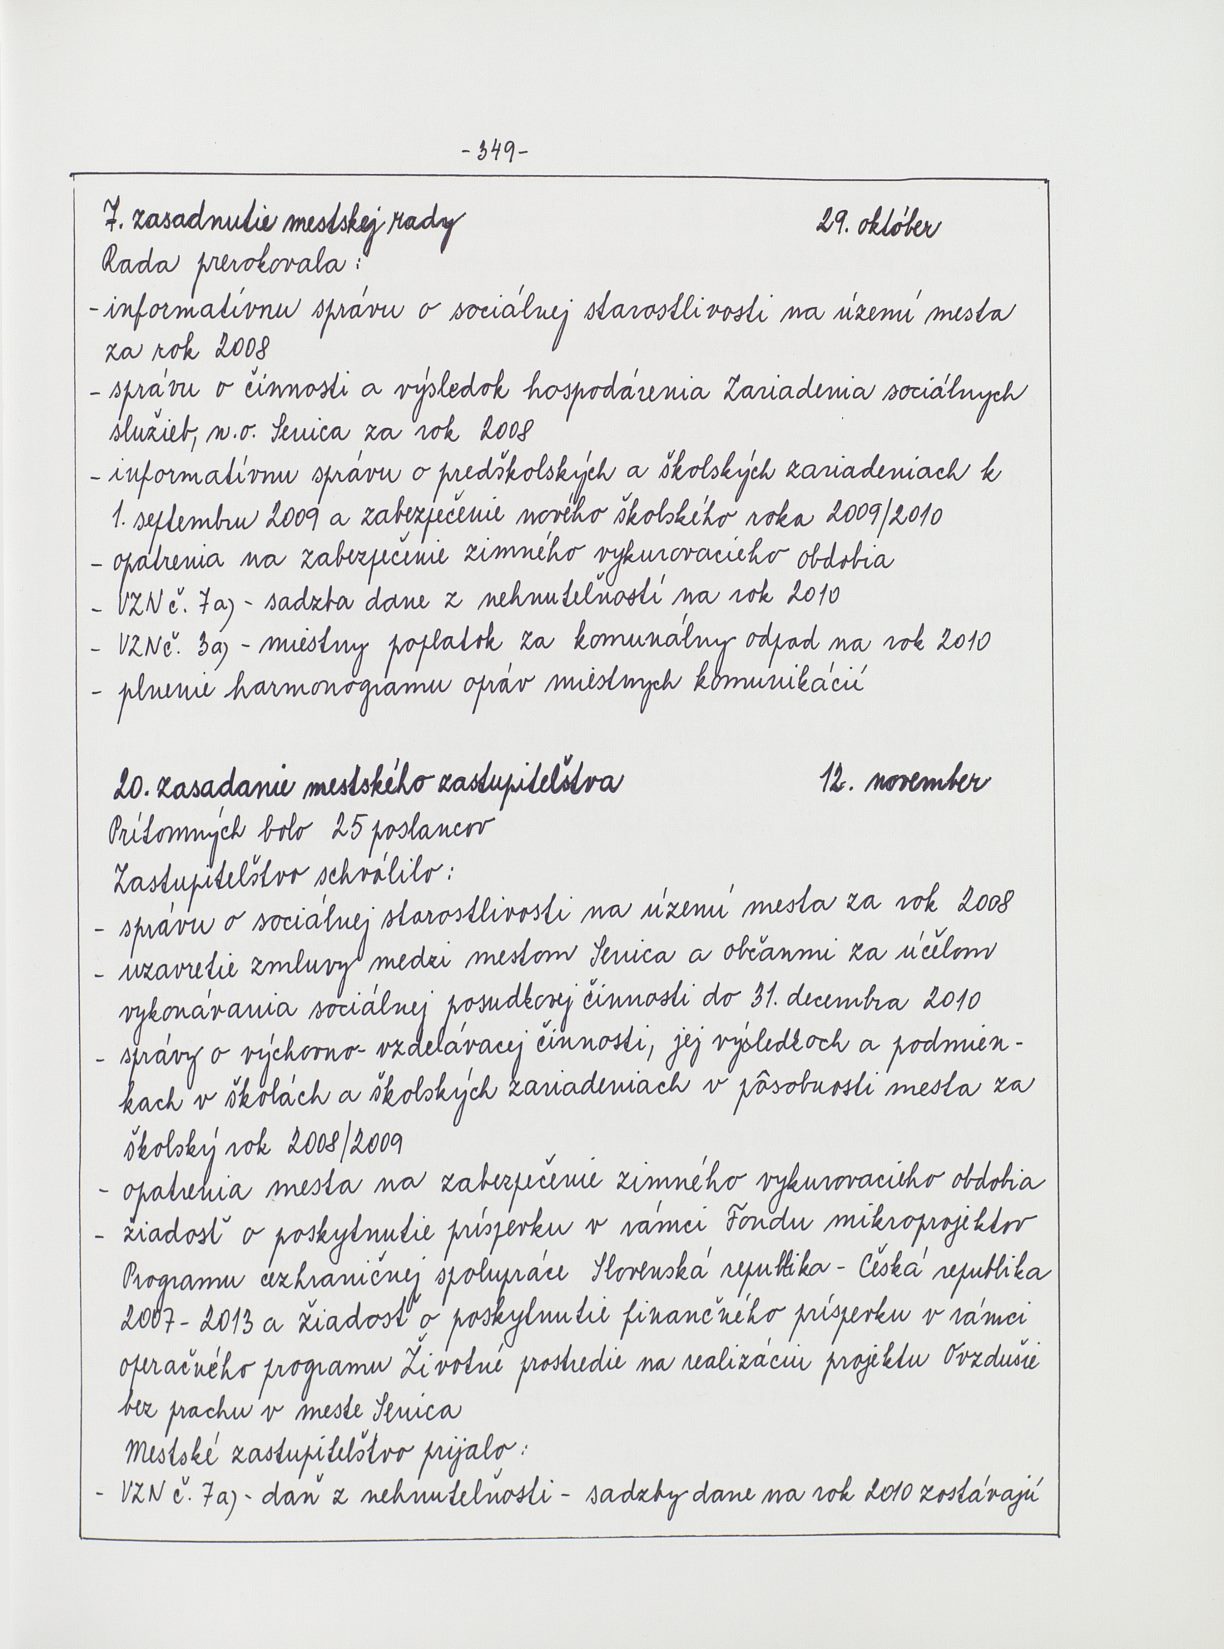 -349-
7. zasadnutie mestskej rady 29. október
Rada prerokovala:
- informatívnu správu o sociálnej starostlivosti na území mesta
za rok 2008
- správu o činnosti a výsledok hospodárenia Zariadenia sociálnych
služieb, n.o. Senica za rok 2008
- informatívnu správu o predškolských a školských zariadeniach k
1. septembru 2009 a zabezpečenie nového školského roka 2009/2010
- opatrenia na zabezpečenie zimného vykurovacieho obdobia
- VZN č. 7a) - sadzba dane z nehnuteľností na rok 2010
- VZN č. 3a) - miestny poplatok za komunálny odpad na rok 2010
- plnenie harmonogramu opráv miestnych komunikácií
20. zasadanie mestského zastupiteľstva 12. november
Prítomných bolo 25 poslancov
Zastupiteľstvo schválilo:
- správu o sociálnej starostlivosti na území mesta za rok 2008
- uzavretie zmluvy medzi mestom Senica a občanmi za účelom
vykonávania sociálnej posudkovej činnosti do 31. decembra 2010
- správy o výchovno-vzdelávacej činnosti, jej výsledkoch a podmien-
kach v školách a školských zariadeniach v pôsobnosti mesta za
školský rok 2008/2009
- opatrenia mesta na zabezpečenie zimného vykurovacieho obdobia
- žiadosť o poskytnutie príspevku v rámci Fondu mikroprojektov
Programu cezhraničnej spolupráce Slovenská republika - Česká republika
2007-2013 a žiadosť o poskytnutie finančného príspevku v rámci
operačného programu Životné prostredie na realizáciu projektu Ovzdušie
bez prachu v meste Senica
Mestské zastupiteľstvo prijalo:
- VZN č. 7a) - daň z nehnuteľnosti - sadzby dane na rok 2010 zostávajú